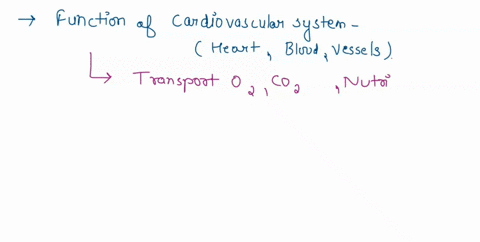 → Function of Cardiovascular system -
(Heart, Blood, Vessels).
Transport O₂, CO₂ , Nutri